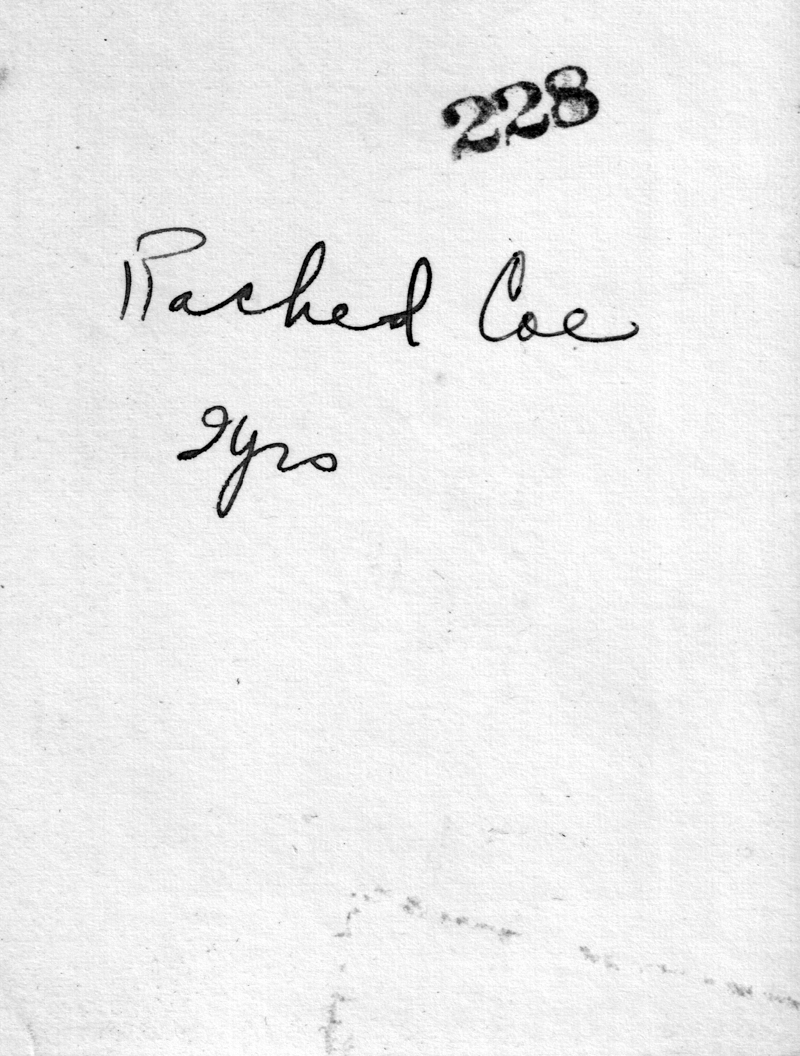 228
Rached Coe
2yrs